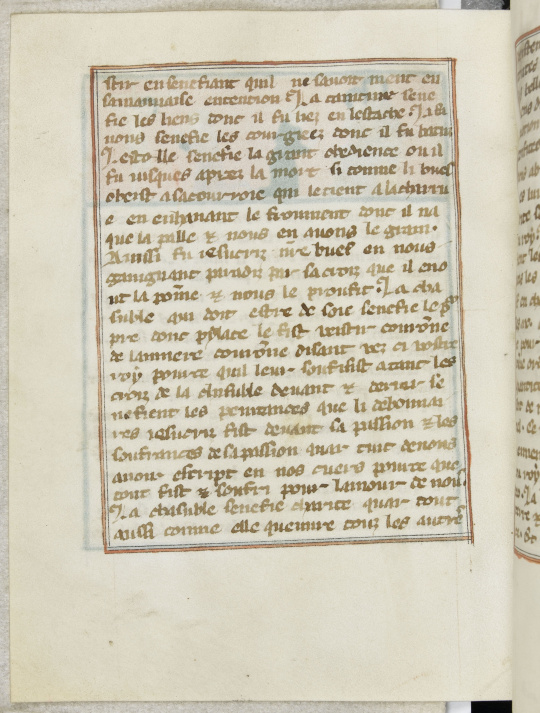 stir en senefiant quil ne savoit ment en
sa mauuaise entention La cainture sene
fie les liens dont il fu liez en lestache La fa
nons senefie les courgiees dont il fu batu
Lestolle senefie la grant obedience ou il
fu iusques apres la mort si comme li buef
obeist a sa courroie qui le tient a la charru
e en enhanant le fromment dont il na
que la palle & nous en auons le grain.
Aussi fu iesucriz nre buef en nous
gaaignant paradiz par sa croiz que il eno
ut la poine & nous le proufit. La cha
suble qui doit estre de soie senefie le
pre dont pylate le fist vestir couronne
de la maniere couronne disant vez ci vostre
roy pource quil leur souffisist a tant les
croiz de la chasuble deuant & derrier se
nefient les penitances que li debonnai
res iesucriz fist deuant sa passion & les
souffrances de sa passion quar tuit deuons
auoir escript en nos cuers pource que
tout fist & souffri pour lamour de nous.
La chasuble senefie charite quar tout
aussi comme elle queuure touz les autres